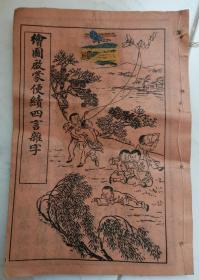 繪圖啟蒙便績四言雜字